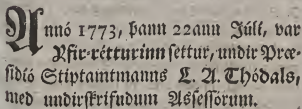 Annó 1773, þann 22ann Júlí, var
Yfir-rétturinn settur, undir Præ-
sidió Stiptamtmanns L. A. Thódals,
med undirskrifudum Assessórum.